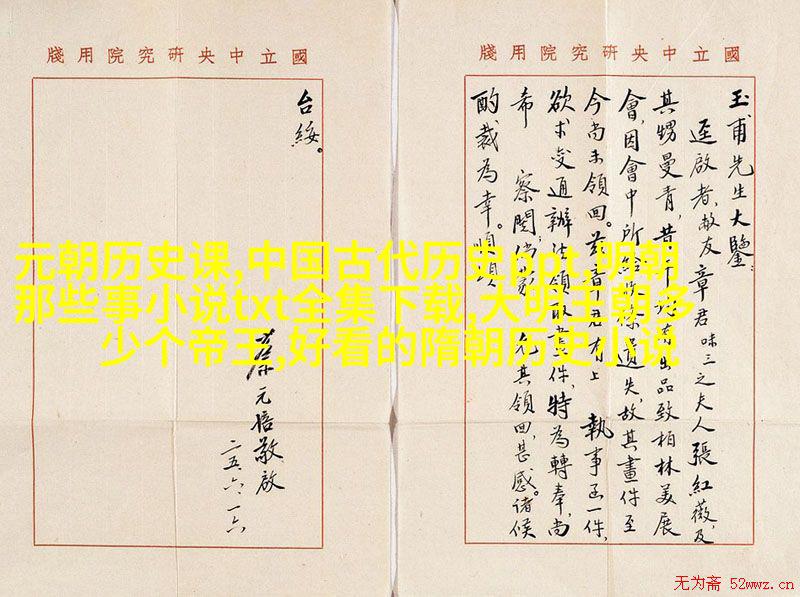 國立中央研究院用牋
國立中央研究院用牋
玉甫先生大鑒：
逕啟者，敝友章君味三之夫人張紅薇，及
其甥曼青，昔 有出品致柏林美展
會，因會中所給收條遺失，故其畫件至
今尚未領回。茲章君有上 執事函一件，
欲求變通辦法領取畫件，特為轉奉，尚
希 察閱，倘蒙 允其領回，甚感。諸候
酌裁為幸。順頌
台綏。
蔡元培敬啟
二五、六、一六
元朝历史课,中国古代历史ppt,明朝
那些事小说txt全集下载,大明王朝多
少个帝王,好看的隋朝历史小说
无为斋 52wwz.cn